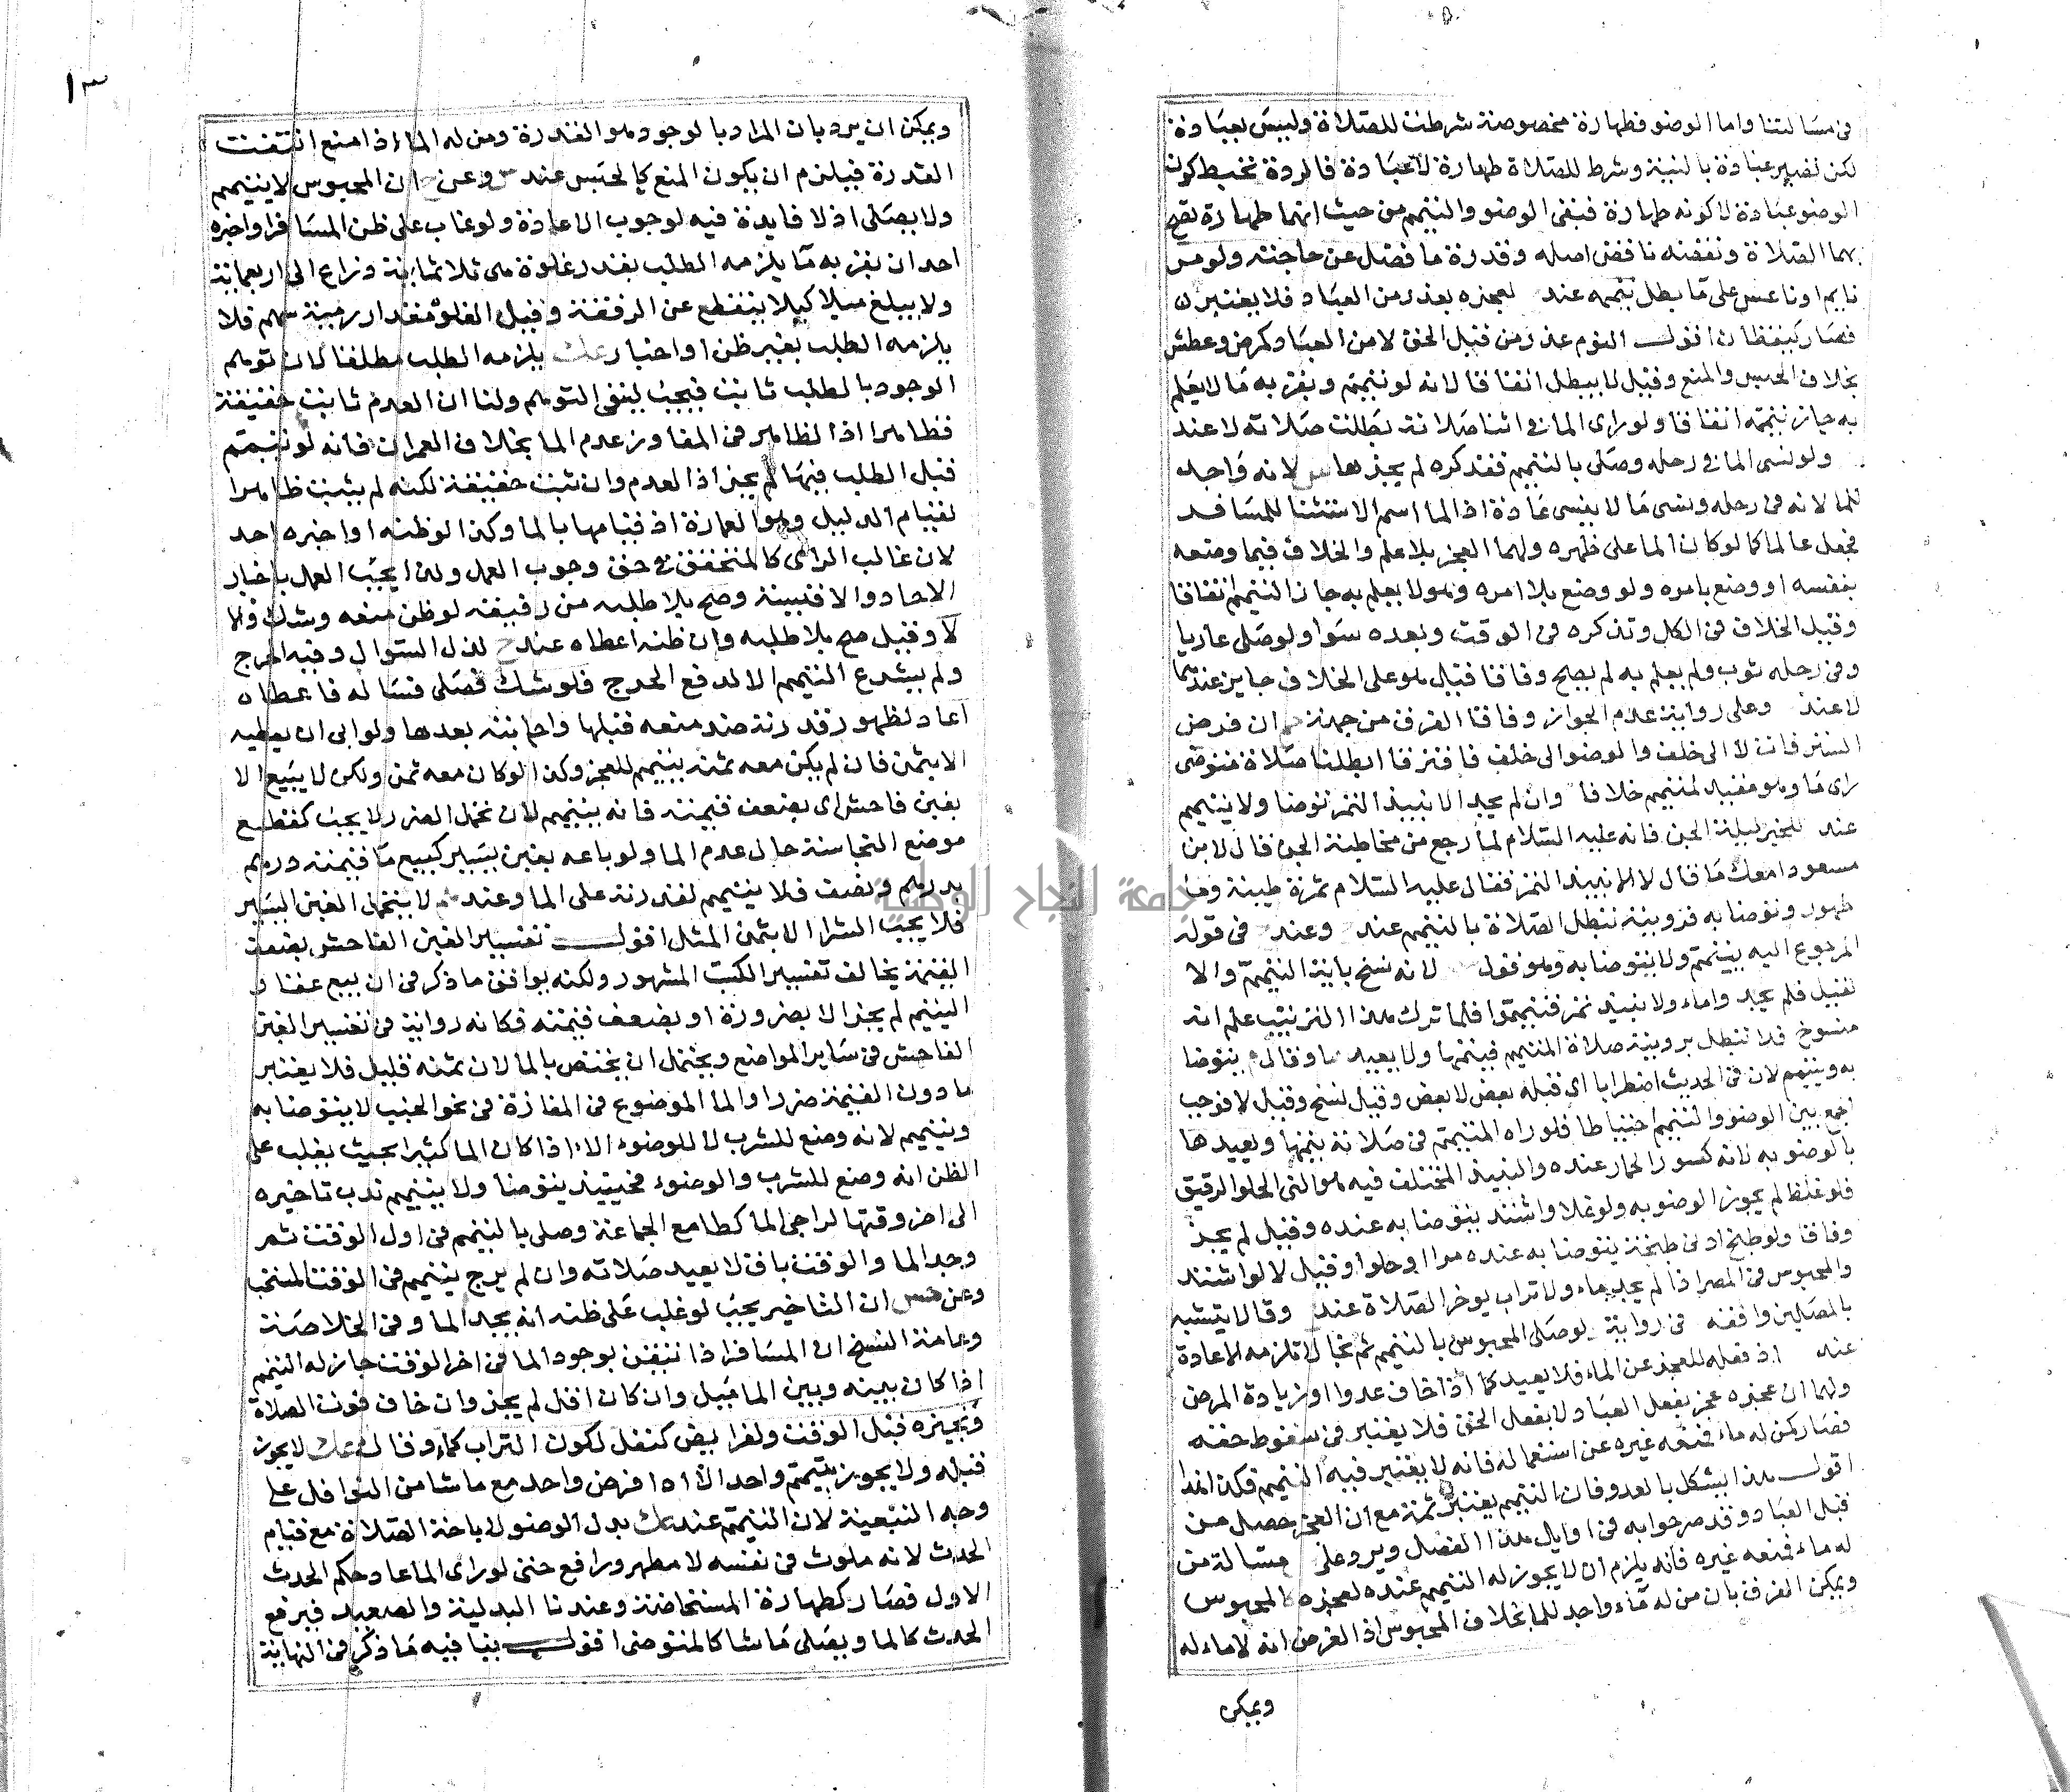 في مسالتنا واما الوضو فطهارة مخصوصة شرطت للصلاة وليس بعبادة
لكن تصير عبادة بالنية وشرط للصلاة طهارة لا عبادة فالردة تحبط كون
الوضو عبادة لا كونه طهارة فبقي الوضو والتيمم من حيث انهما طهارة تصح
بهما الصلاة ونقضه ناقض اصله وقدرة ما فضل عن حاجته ولو مر
نايم او ناعس على ما بطل تيممه عند لعجزه بعذر من العباد فلا يعتبر
فصار كيقظان اقول النوم عذر من قبل الحق لا من العباد كمرض وعطش
بخلاف الحبس والمنع وقيل لا يبطل اتفاقا لانه لو تيمم وبقربه ما لا يعلم
به جاز تيممه اتفاقا ولو راى الما في اثنا صلاته بطلت صلاته لا عند
ولو نسى الما في رحله وصلى بالتيمم فتذكره لم يجزها س لانه واجد
للما لانه في رحله ونسى ما لا ينسى عادة اذ الما اسم الاشيا للمسافر
فجعل عالما كما لو كان الما على ظهره ولهما العجز بلا علم والخلاف فيما وضعه
بنفسه او وضع بامره ولو وضع بلا امره وهو لا يعلم به جاز التيمم اتفاقا
وقيل الخلاف في الكل وتذكره في الوقت وبعده سوا ولو صلى عاريا
وفي رحله ثوب ولم يعلم به لم يصح وفاقا فقيل هو على الخلاف جايز عندهما
لا عند وعلى رواية عدم الجواز وفاقا الفرق من جهة ان فرض
الستر فات لا الى خلف والوضو الى خلف فافترقا ابطلنا صلاة متوضى
راى ما وهو مقتد لمتيمم خلافا وان لم يجد الا نبيذ التمر توضا ولا يتيمم
عند لخبر ليلة الجن فانه عليه السلام لما رجع من مخاطبة الجن قال لابن
مسعود امعك ما قال لا الا نبيذ التمر فقال عليه السلام تمرة طيبة وما
طهور وتوضا به فرويته تبطل الصلاة بالتيمم عند وعند في قوله
المرجوع اليه يتيمم ولا يتوضا به وهو قول لانه نسخ باية التيمم والا
لقيل فلم تجدوا ماء ولا نبيذ تمر فتيمموا فلما ترك هذا الترتيب علم انه
منسوخ فلا تبطل برويته صلاة المتيمم فيتمها ولا يعيدها وقال م يتوضا
به ويتيمم لان في الحديث اضطرابا اي قبله بعض لا بعض وقيل نسخ وقيل لا فوجب
الجمع بين الوضو والتيمم احتياطا فلو راه المتيمم في صلاته يتمها ويعيدها
بالوضو به لانه كسور الحمار عنده والنبيذ المختلف فيه هو التي الحلو الرقيق
فلو غلظ لم يجوز الوضو به ولو غلا واشتد يتوضا به عنده وقيل لم يجز
وفاقا ولو طبخ ادنى طبخة يتوضا به عنده مرا او حلوا وقيل لا لو اشتد
والمحبوس في المصر اذا لم يجد ماء ولا تراب يوخر الصلاة عند وقالا يتشبه
بالمصلين وافقه في رواية لوصلى المحبوس بالتيمم ثم نجا لا تلزمه الاعادة
عنه اذ فعله للعجز عن الماء فلا يعيد كما اذا خاف عدوا او زيادة المرض
ولهما ان عجزه عجز بفعل العباد لا بفعل الحق فلا يعتبر في سقوط حقه
فصار كمن له ماء فمنعه غيره عن استعماله فانه لا يعتبر فيه التيمم فكذا هذا
اقول هذا يشكل بالعدو فان التيمم يعتبر ثمة مع ان العجز حصل من
قبل العباد وقد صرحوا به في اوايل هذا الفصل ويرد على مسالة من
له ماء فمنعه غيره فانه يلزم ان لا يجوز له التيمم عنده لعجزه كالمحبوس
ويمكن الفرق بان من له ماء واجد للما بخلاف المحبوس اذ الغرض انه لا ماء له
ويمكن
١٣
ويمكن ان يرد بان المراد بالوجود هو القدرة ومن له الماء اذا منع انتفت
القدرة فيلزم ان يكون المنع كالحبس عند س وعن ح ان المحبوس لا يتيمم
ولا يصلى اذ لا فايدة فيه لوجوب الاعادة ولو غاب على ظن المسافر او اخبره
احد ان بقربه ما يلزمه الطلب بقدر غلوة هى ثلاثماية ذراع الى اربعماية
ولا يبلغ ميلا كيلا ينقطع عن الرفقة وقيل الغلوة مقدار رمية سهم فلا
يلزمه الطلب بغير ظن او اخبار وعند يلزمه الطلب مطلقا لان توهم
الوجود بالطلب ثابت فيجب لينفي التوهم ولنا ان العدم ثابت حقيقة
فظاهرا اذ الظاهر في المفاوز عدم الما بخلاف العمران فانه لو تيمم
قبل الطلب فيها لم يجز اذ العدم وان ثبت حقيقة لكنه لم يثبت ظاهرا
لقيام الدليل وهو العمارة اذ قيامها بالما وكذا لو ظنه او اخبره احد
لان غالب الراى كالمتحقق في حق وجوب العمل ولذا يجب العمل باخبار
الاحاد والاقيسة وصح بلا طلبه من رفيقه لو ظن منعه وشك والا
لا وقيل صح بلا طلبه وان ظنه اعطاه عند ح لذل السوال وفيه الحرج
ولم يشرع التيمم الا لدفع الحرج فلو شك فصلى فساله فاعطاه
اعاد لظهور قدرته ضد منعه قبلها واجابته بعدها ولو ابى ان يعطيه
الا بثمن فان لم يكن معه ثمنه يتيمم للعجز وكذا لو كان معه ثمن ولكن لا يبيع الا
بغبن فاحش اى بضعف قيمته فانه يتيمم لان تحمل الضرر لا يجب كقطع
موضع النجاسة حال عدم الما ولو باعه بغبن يسير كبيع ما قيمته درهم
بدرهم ونصف فلا يتيمم لقدرته على الما وعند لا يتحمل الغبن اليسير
فلا يجب الشرا الا بثمن المثل اقول تفسير الغبن الفاحش بضعف
القيمة يخالف تفسير الكتب المشهور ولكنه يوافق ما ذكر في ان بيع عقار
اليتيم لم يجز الا بضرورة او بضعف قيمته فكانه رواية في تفسير الغبن
الفاحش في ساير المواضع ويحتمل ان يختص بالما لان ثمنه قليل فلا يعتبر
ما دون القيمة ضررا والما الموضوع في المفازة في نحو الجب لا يتوضا به
ويتيمم لانه وضع للشرب لا للوضوء الا اذا كان الما كثيرا بحيث يغلب على
الظن انه وضع للشرب والوضوء فحينيذ يتوضا ولا يتيمم ندب تاخيره
الى اخر وقتها لراجى الما كطامع الجماعة وصلى بالتيمم في اول الوقت ثم
وجد الما والوقت باق لا يعيد صلاته وان لم يرج يتيمم في الوقت المستحب
وعن ان التاخير يجب لو غلب على ظنه انه يجد الما وفي الخلاصة
وعامة النسخ ان المسافر اذا تيقن بوجود الما في اخر الوقت جاز له التيمم
اذا كان بينه وبين الما ميل وان كان اقل لم يجز وان خاف فوت الصلاة
ونجيزه قبل الوقت ولفرايض كنفل لكون التراب كماء وقال لا يجوز
قبله ولا يجوز بتيمم واحد الا اداء فرض واحد مع ما شا من النوافل على
وجه التبعية لان التيمم عند بدل الوضو لاباحة الصلاة مع قيام
الحدث لانه ملوث في نفسه لا مطهر ورافع حتى لو راى الما عاد حكم الحدث
الاول فصار كطهارة المستحاضة وعندنا البدلية والصعيد فيرفع
الحدث كالما ويصلى ما شا كالمتوضى اقول ينافيه ما ذكر في النهاية
جامعة النجاح الوطنية